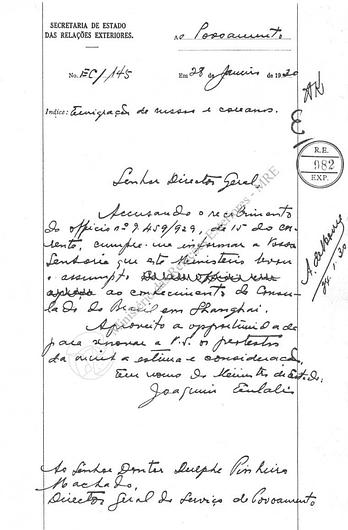 SECRETARIA DE ESTADO
DAS RELAÇÕES EXTERIORES.
Ao Povoamento
No. EC/145
Em 28 de Janeiro de 1930
Indice: Emigração de russos e coreanos.
R.E.
982
EXP.
Senhor Director Geral,
Accusando o recebimento
do officio nº 7.459/929, de 15 do cor-
rente, cumpre-me informar a Vossa
Senhoria que este Ministerio levou
o assumpto
ao conhecimento do Consu-
lado do Brasil em Shanghai.
Aproveito a opportunidade
para renovar a V.S. os protestos
da minha estima e consideração.
Em nome do Ministro de Estado:
Joaquim Eulalio
Ao Senhor Doutor Dulphe Pinheiro
Machado,
Director Geral do Serviço de Povoamento